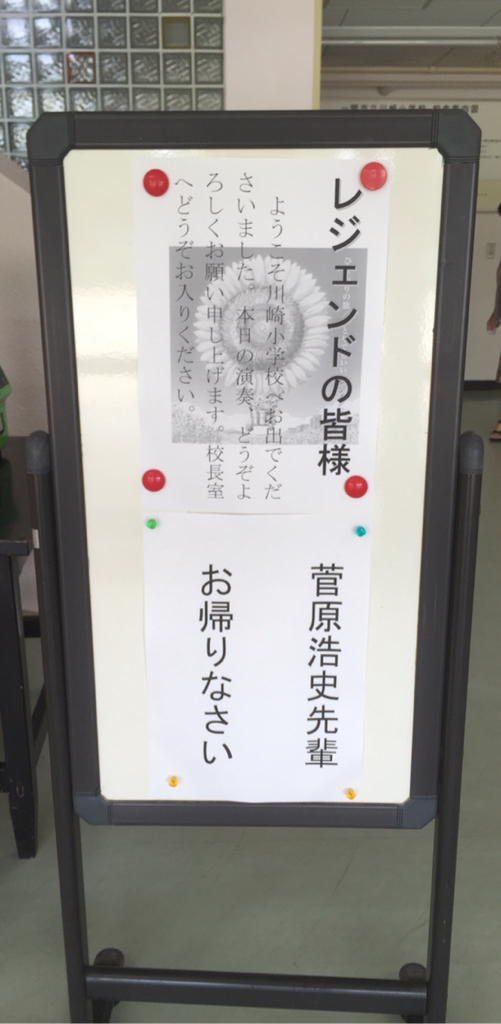 レジェンドの皆様
ようこそ川崎小学校へお出でくだ
さいました。本日の演奏、どうぞよ
ろしくお願い申し上げます。校長室
へどうぞお入りください。
菅原浩史先輩
お帰りなさい